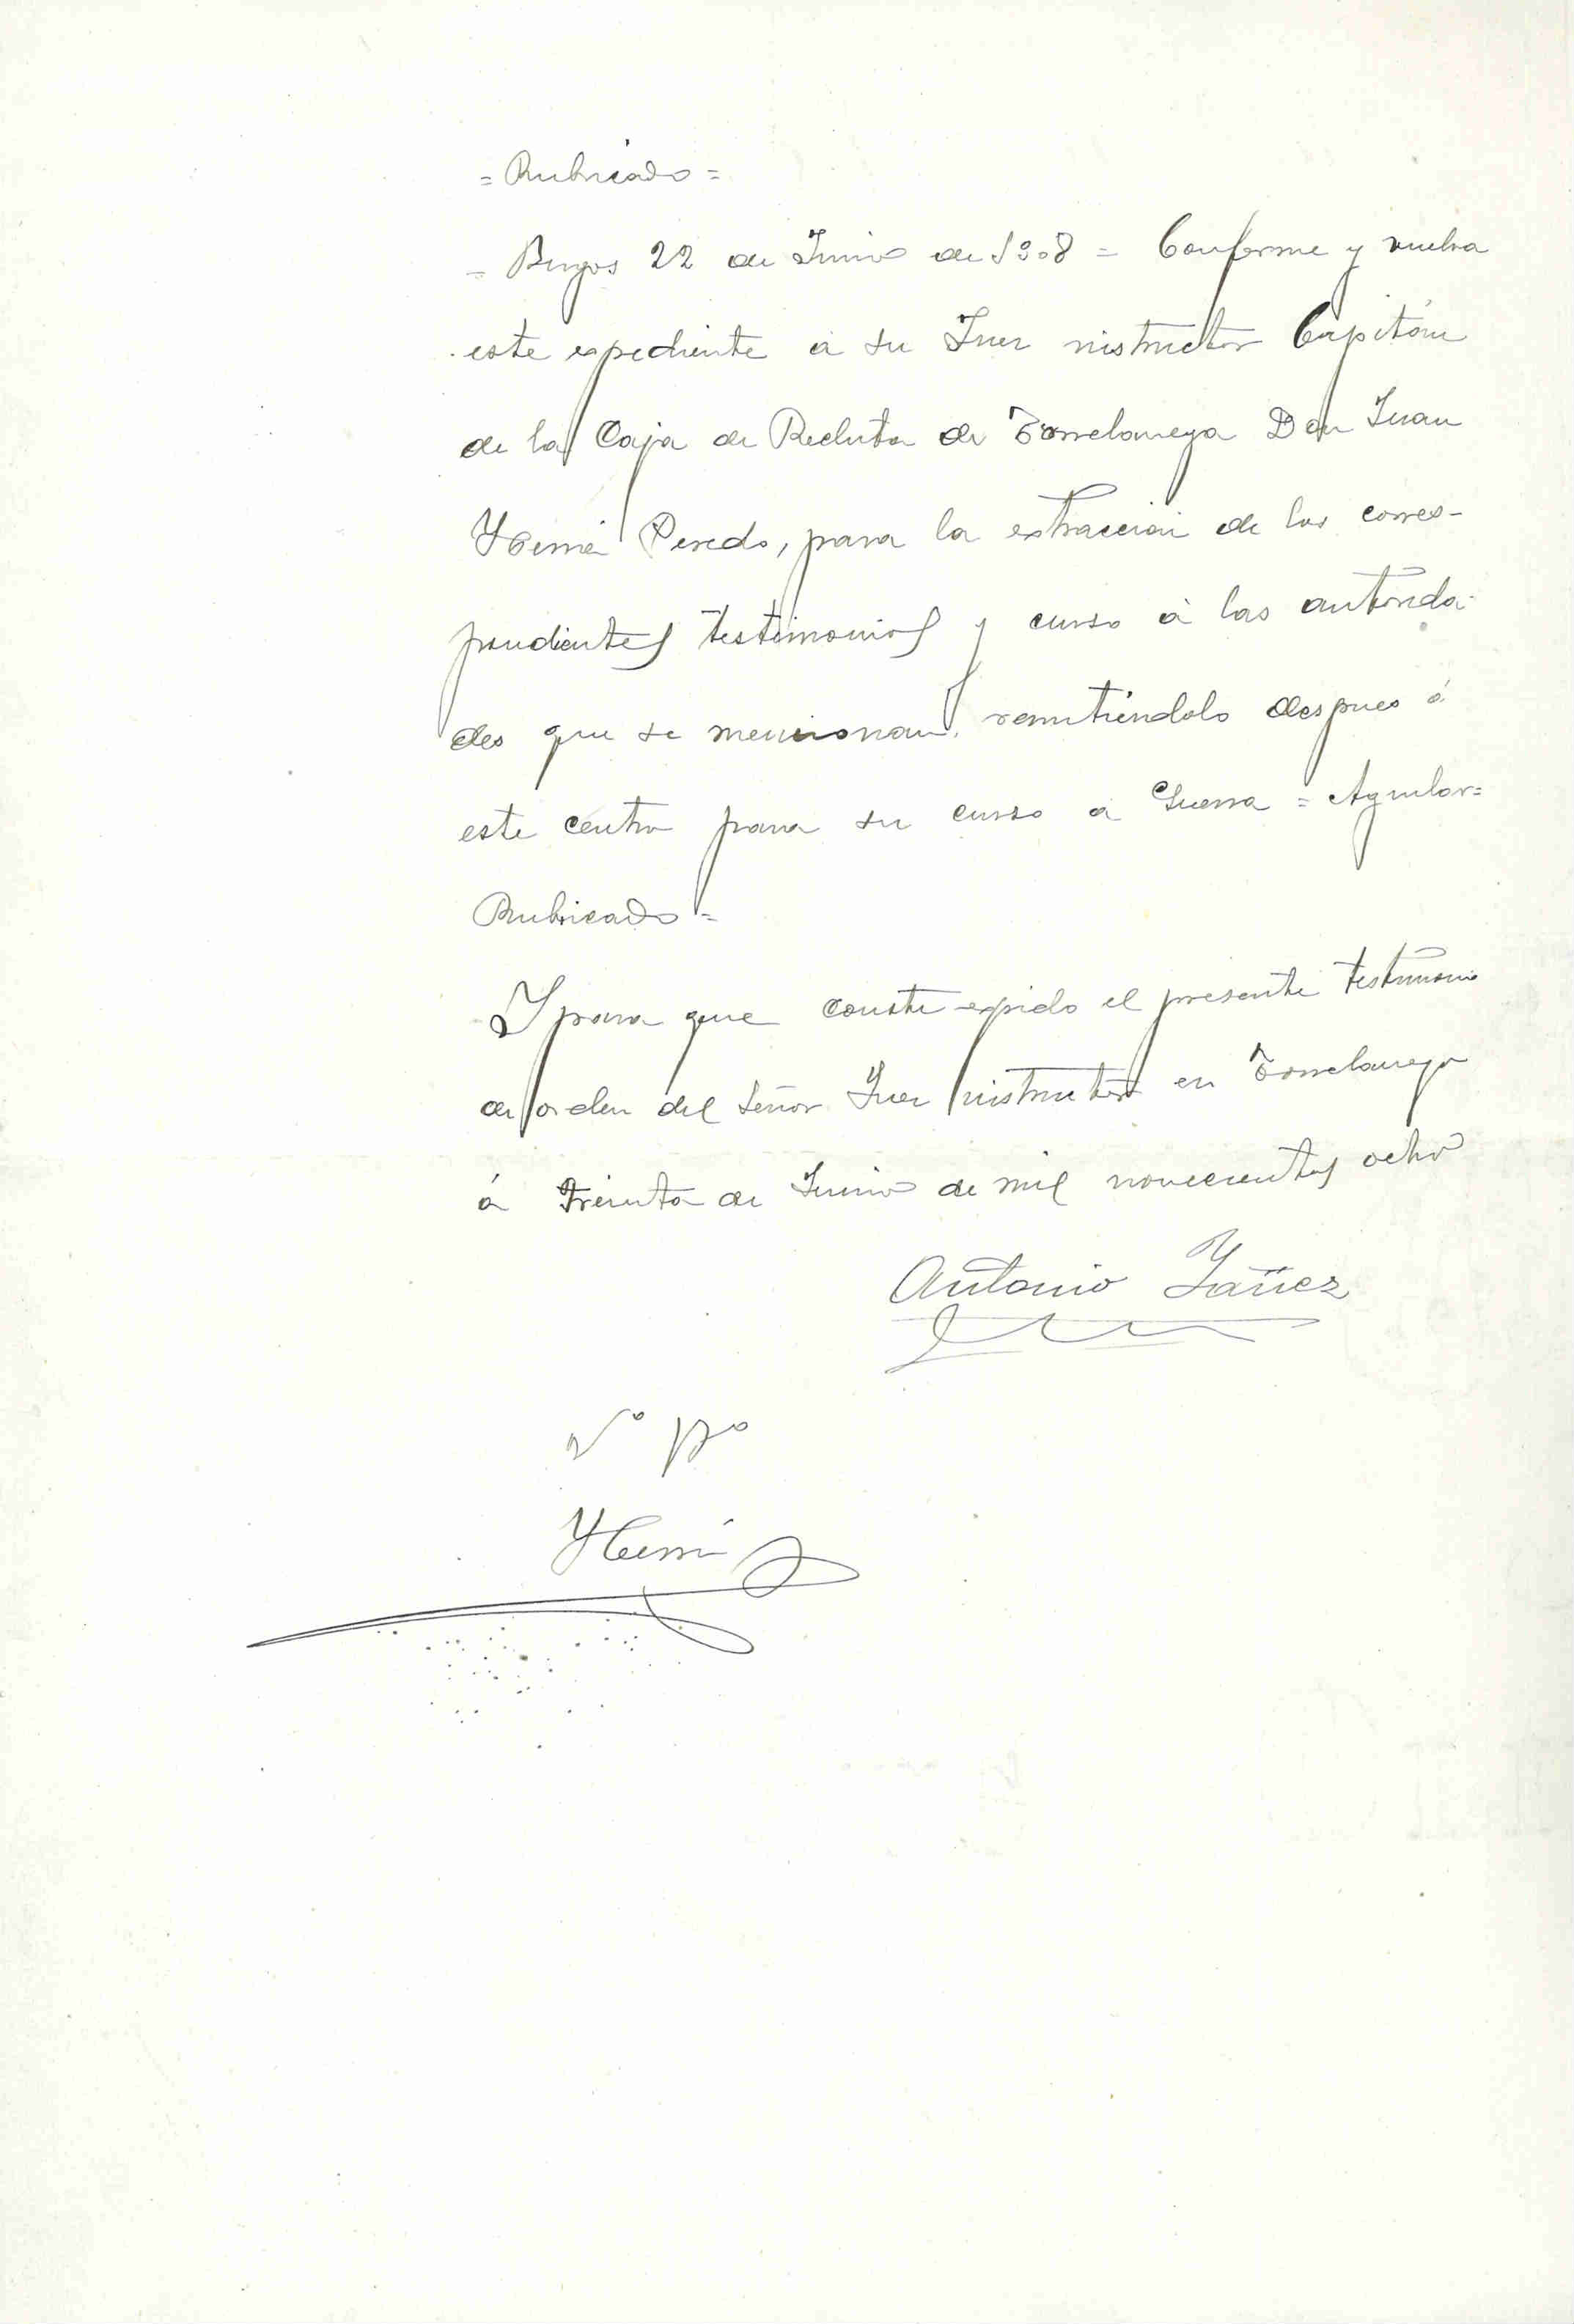 = Rubricado =
= Burgos 22 de Junio de 1908 = Conforme y vuelva
este expediente á su Juez instructor Capitán
de la Caja de Recluta de Torrelavega Don Juan
Peredo, para la extracción de los corres-
pondientes testimonios y curso á las autorida-
des que se mencionan, remitiéndolo despues á
este centro para su curso a Guerra = Aguilar =
Rubricado =
Y para que conste expido el presente testimonio
de orden del Señor Juez instructor en Torrelavega
á treinta de Junio de mil novecientos ocho
Antonio Yáñez
Vº Bº